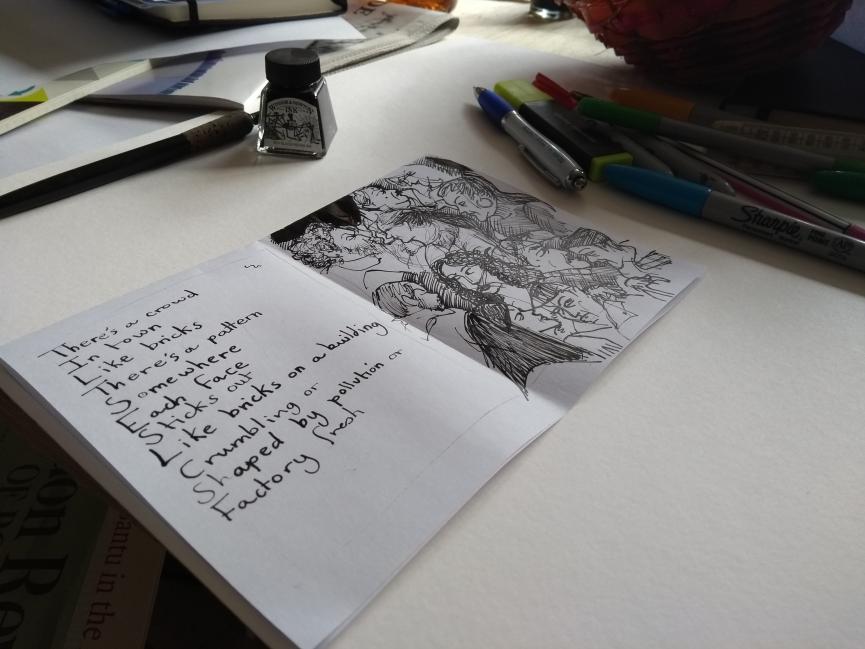 There's a crowd
In town
Like bricks
There's a pattern
Somewhere
Each face
Sticks out
Like bricks on a building
Crumbling or
Shaped by pollution or
Factory fresh
INK
Sharpie
on Re
antu in the